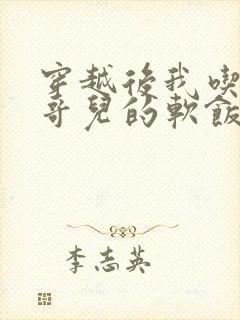 穿越後我喫
哥兒的軟飯
李志英